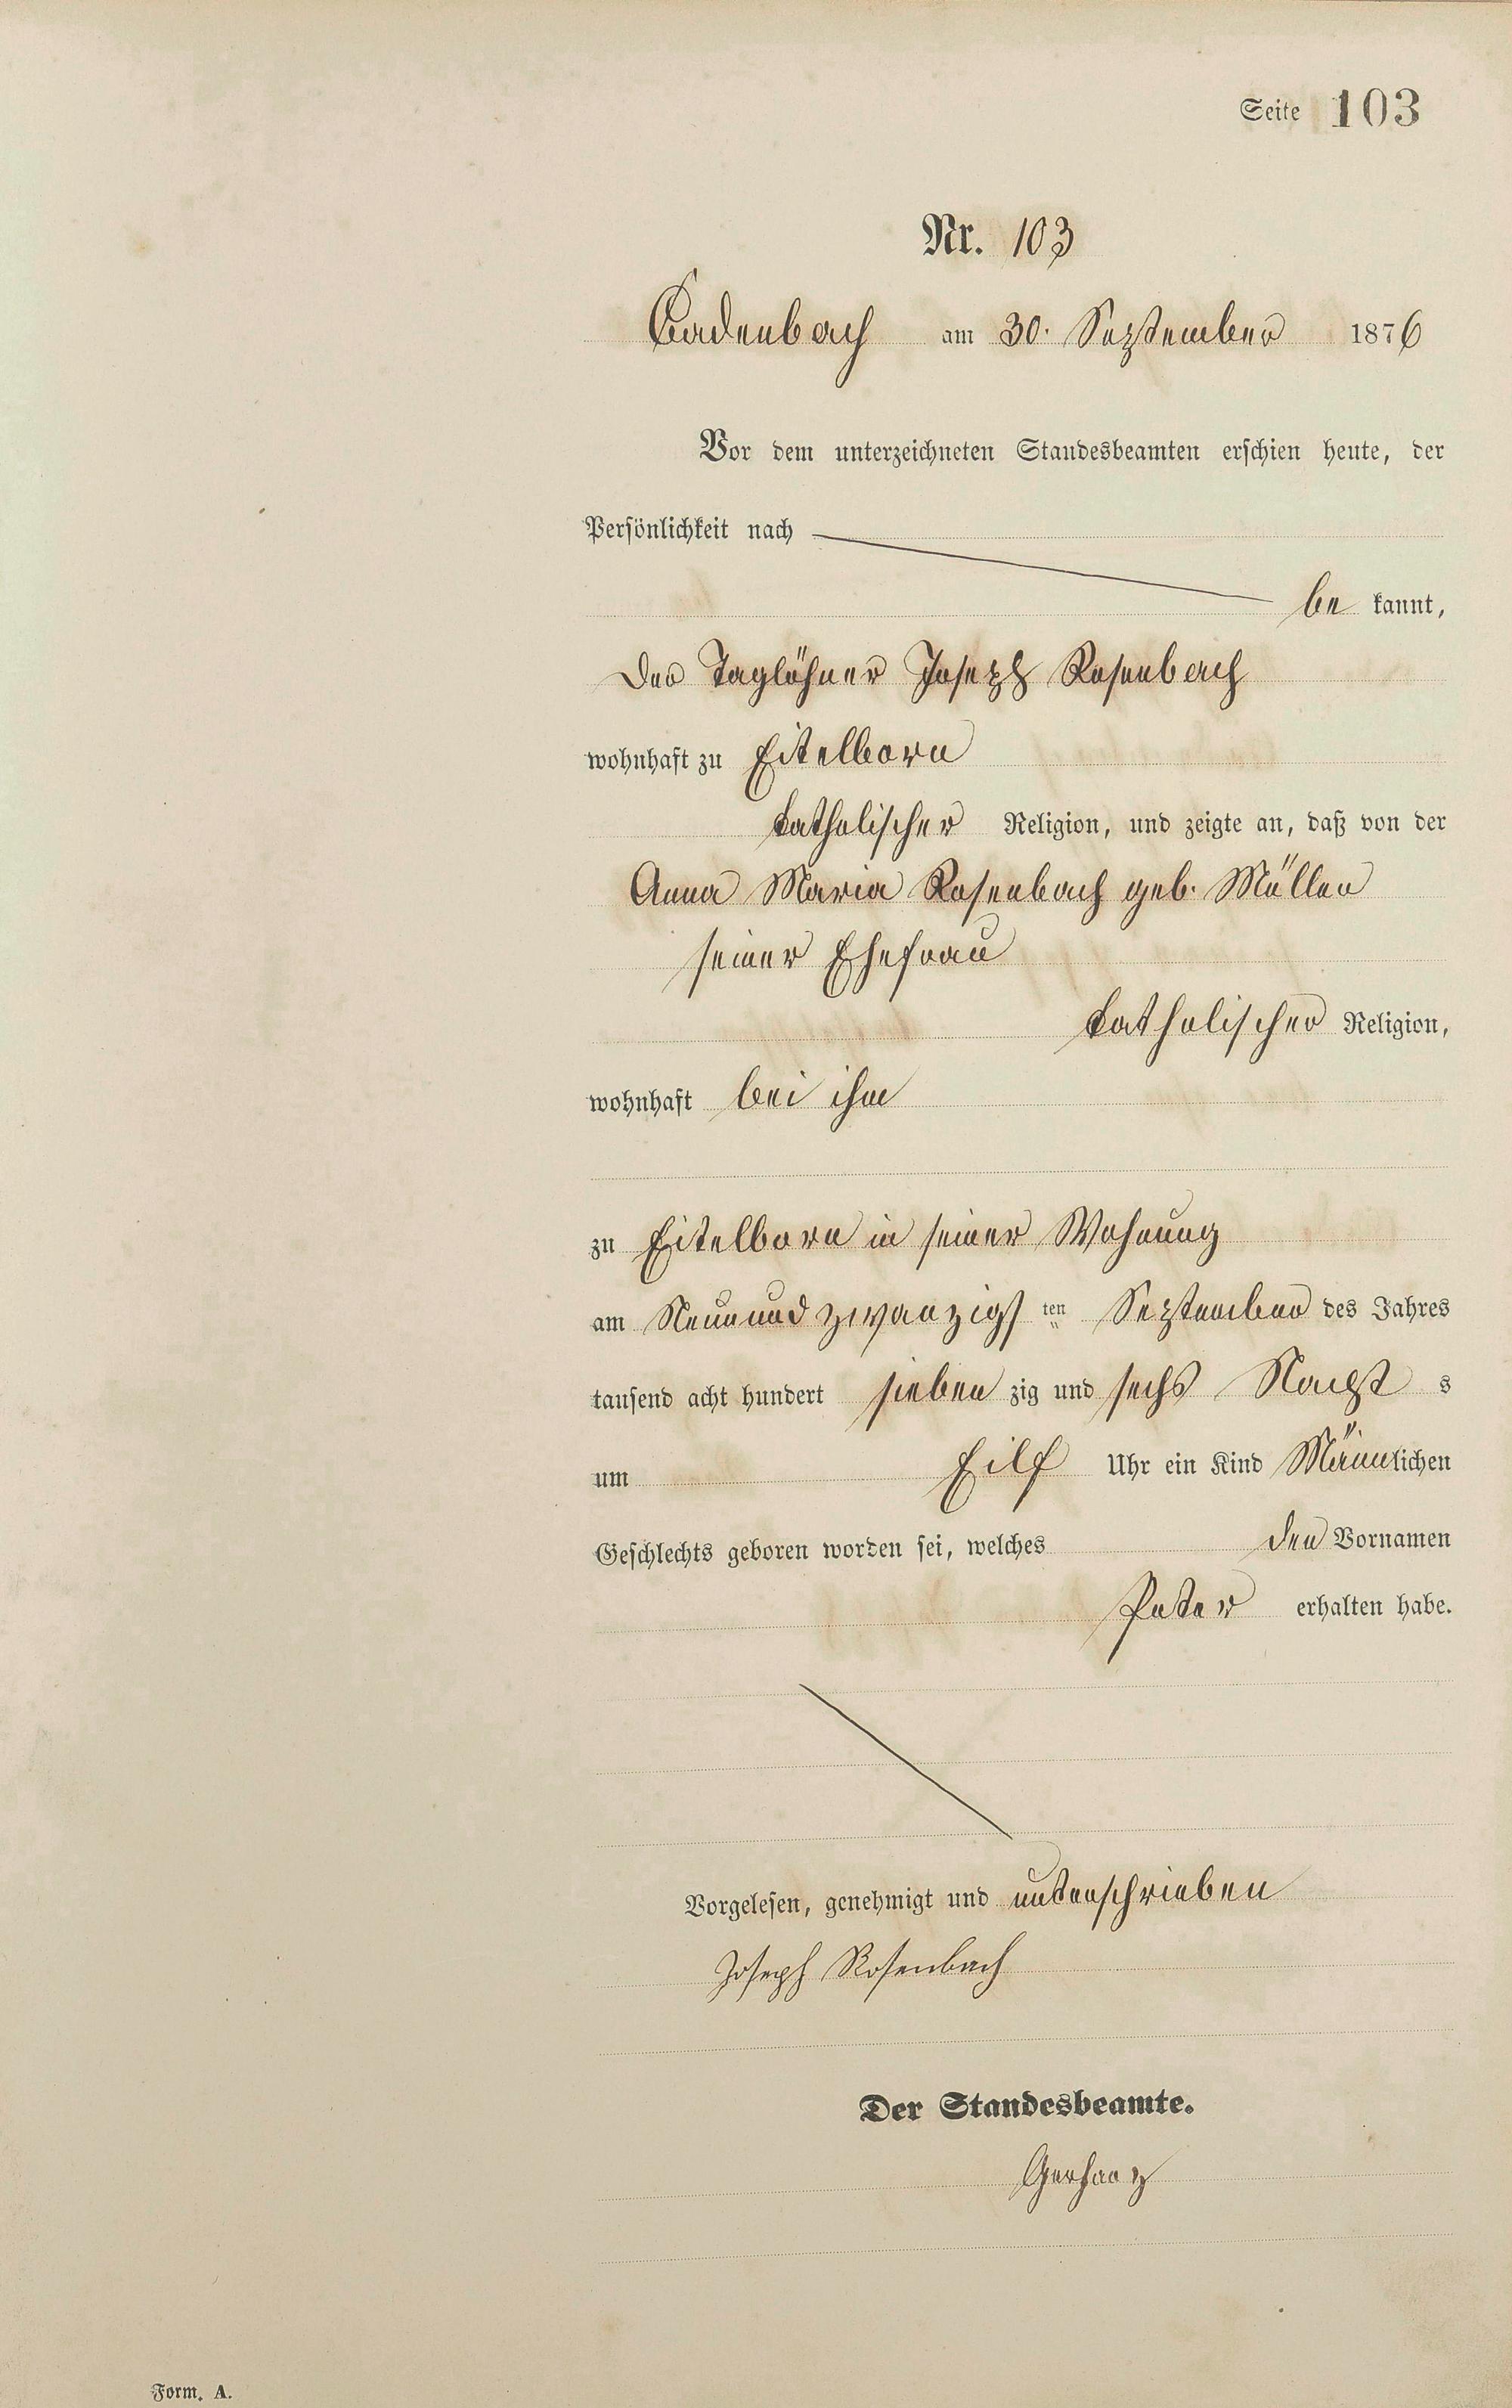 Seite 103
Nr. 103
Cadenbach am 30. September 1876
Vor dem unterzeichneten Standesbeamten erschien heute, der
Persönlichkeit nach
be kannt,
der Taglöhner Joseph Rosenbach
wohnhaft zu Eitelborn
katholischer Religion, und zeigte an, daß von der
Anna Maria Rosenbach geb. Müller
seiner Ehefrau
katholischer Religion,
wohnhaft bei ihm
zu Eitelborn in seiner Wohnung
am Neunundzwanzigs ten September des Jahres
tausend acht hundert sieben zig und sechs Nacht s
um Eilf Uhr ein Kind Männlichen
Geschlechts geboren worden sei, welches den Vornamen
Peter erhalten habe.
Vorgelesen, genehmigt und unterschrieben
Joseph Rosenbach
Der Standesbeamte.
Gerharz
Form. A.